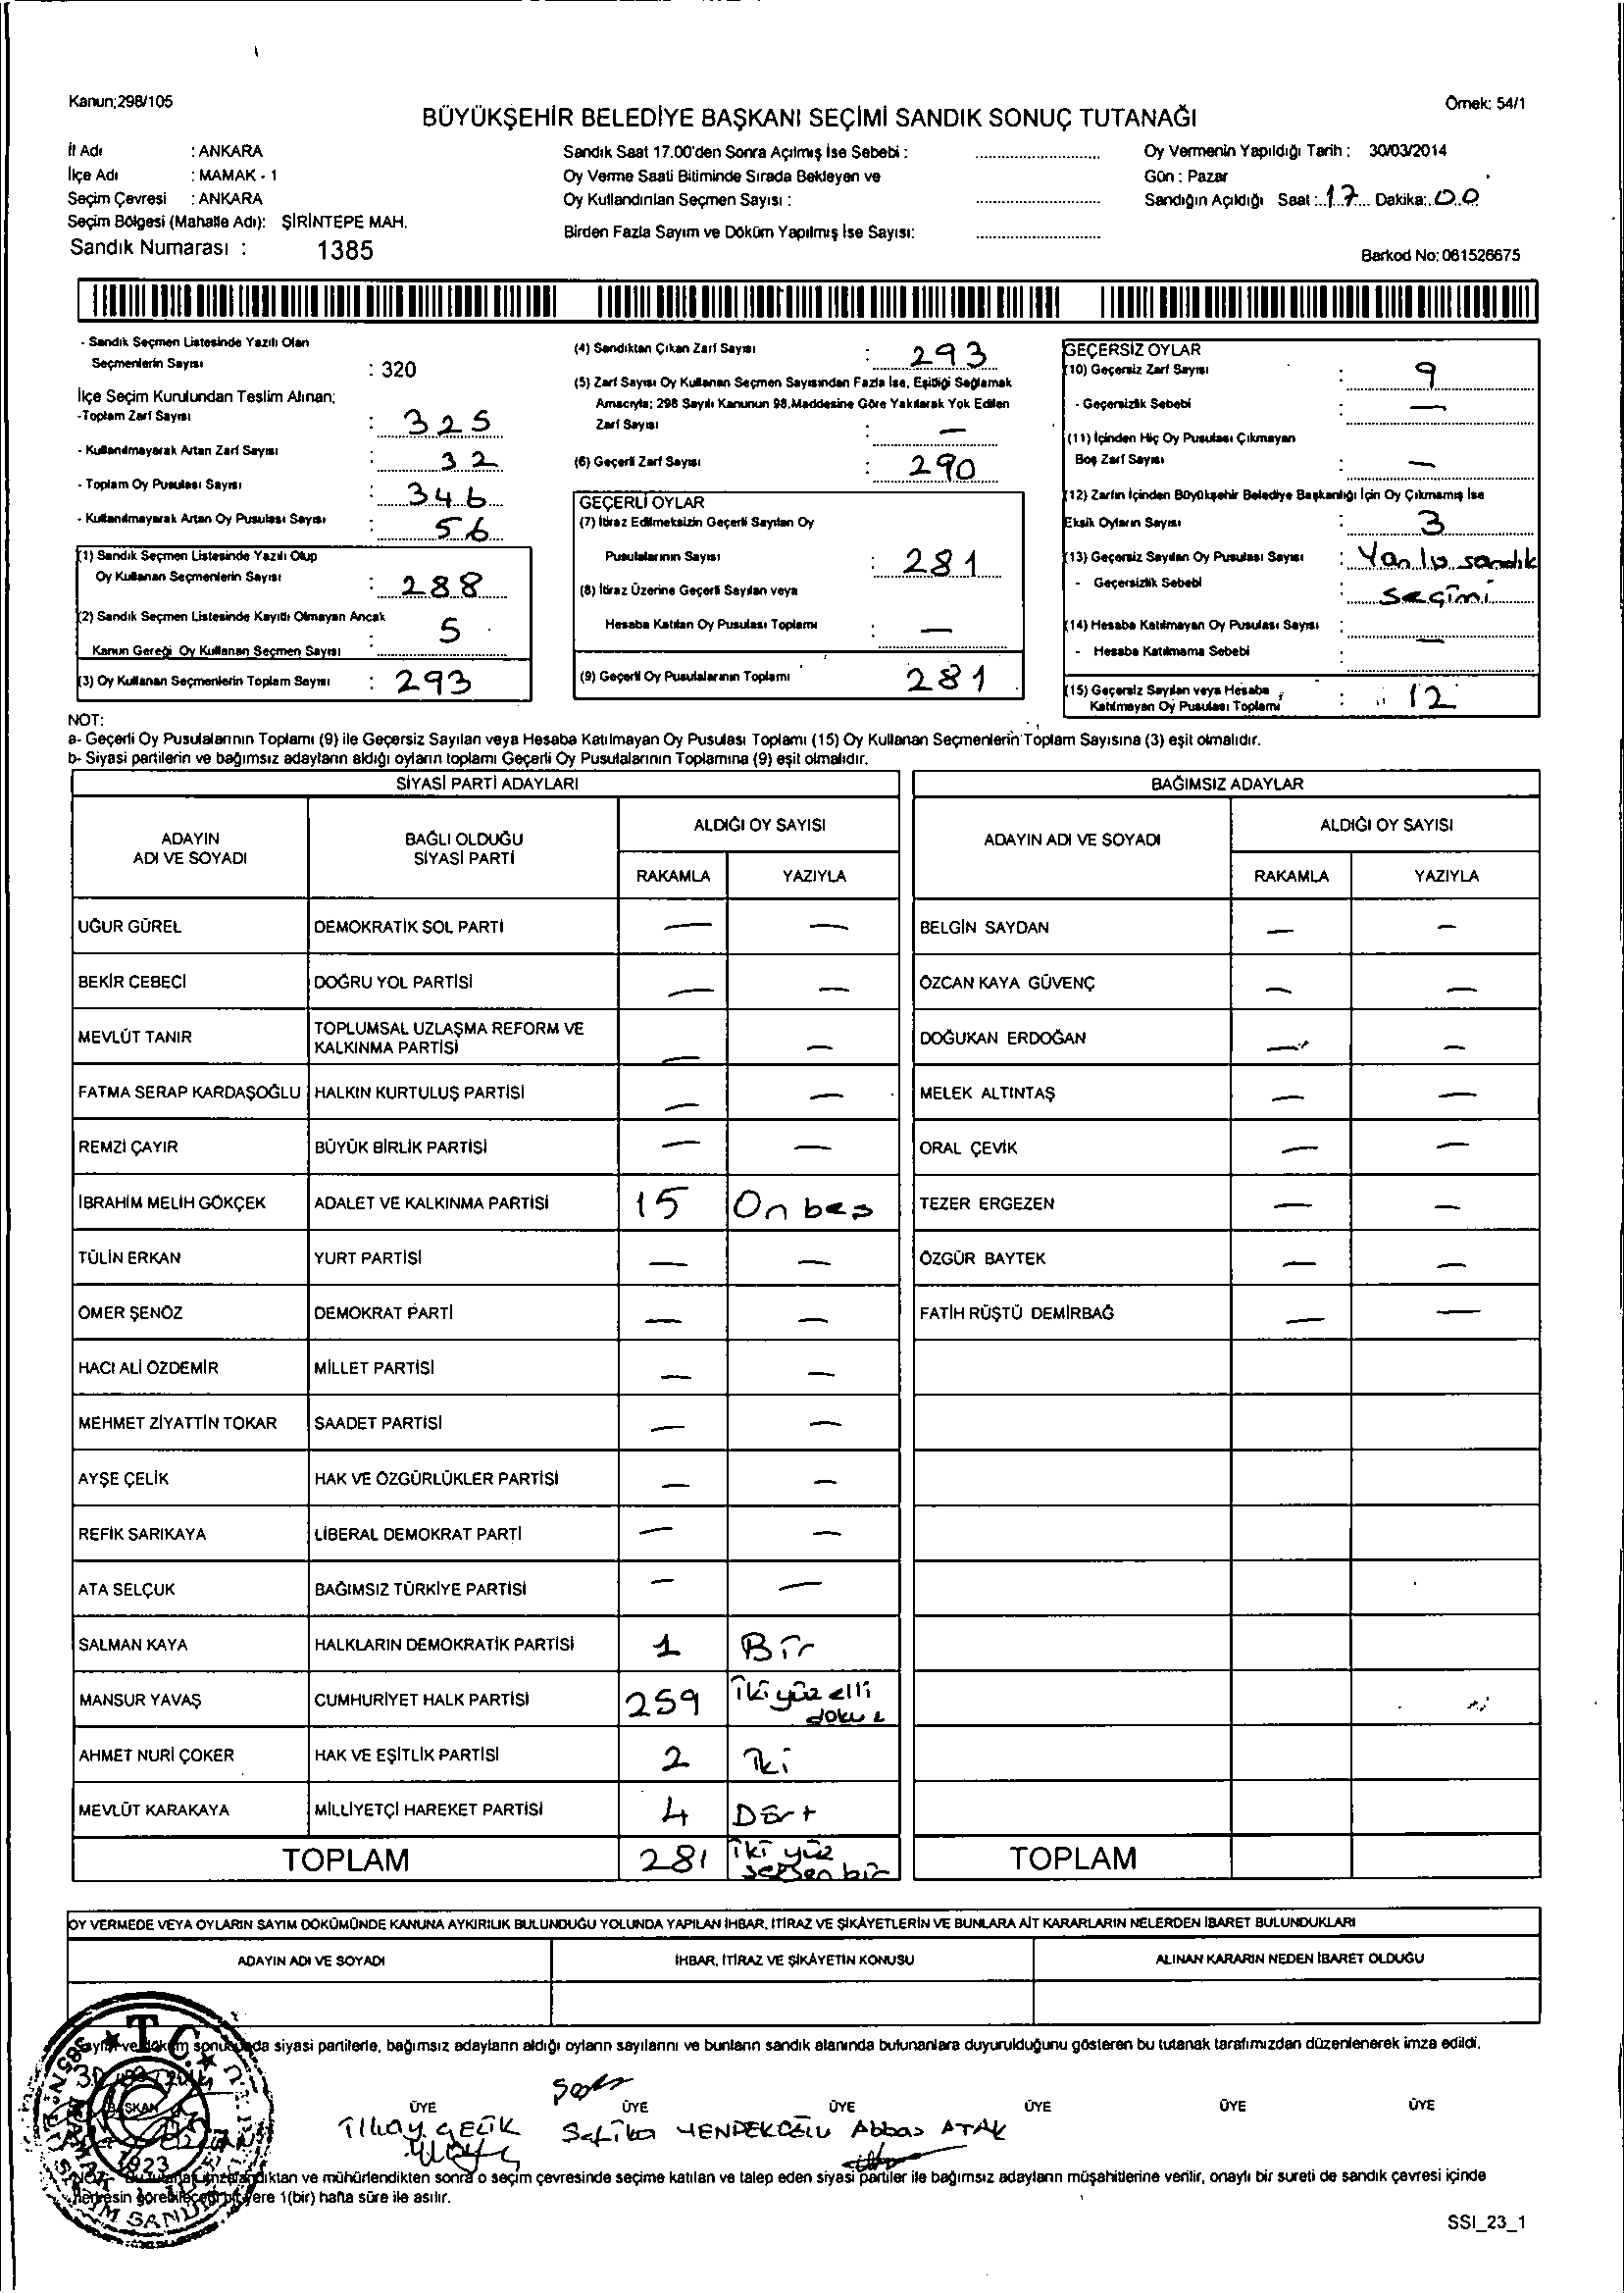 Kanun;298/105
Örnek: 54/1
BÜYÜKŞEHİR BELEDİYE BAŞKANI SEÇİMİ SANDIK SONUÇ TUTANAĞI
İl Adı : ANKARA
İlçe Adı : MAMAK - 1
Seçim Çevresi : ANKARA
Seçim Bölgesi (Mahalle Adı): ŞİRİNTEPE MAH.
Sandık Numarası : 1385
Sandık Saat 17.00'den Sonra Açılmış İse Sebebi :
Oy Verme Saati Bitiminde Sırada Bekleyen ve
Oy Kullandırılan Seçmen Sayısı :
Birden Fazla Sayım ve Döküm Yapılmış İse Sayısı:
Oy Vermenin Yapıldığı Tarih : 30/03/2014
Gün : Pazar
Sandığın Açıldığı Saat : 17 Dakika: 00
Barkod No: 061526675
- Sandık Seçmen Listesinde Yazılı Olan
Seçmenlerin Sayısı : 320
İlçe Seçim Kurulundan Teslim Alınan;
-Toplam Zarf Sayısı : 325
- Kullanılmayarak Artan Zarf Sayısı : 32
- Toplam Oy Pusulası Sayısı : 346
- Kullanılmayarak Artan Oy Pusulası Sayısı : 56
(1) Sandık Seçmen Listesinde Yazılı Olup
Oy Kullanan Seçmenlerin Sayısı : 288
(2) Sandık Seçmen Listesinde Kayıtlı Olmayan Ancak
Kanun Gereği Oy Kullanan Seçmen Sayısı : 5
(3) Oy Kullanan Seçmenlerin Toplam Sayısı : 293
(4) Sandıktan Çıkan Zarf Sayısı : 293
(5) Zarf Sayısı Oy Kullanan Seçmen Sayısından Fazla İse, Eşitliği Sağlamak
Amacıyla; 298 Sayılı Kanunun 98.Maddesine Göre Yakılarak Yok Edilen
Zarf Sayısı : —
(6) Geçerli Zarf Sayısı : 290
GEÇERLİ OYLAR
(7) İtiraz Edilmeksizin Geçerli Sayılan Oy
Pusulalarının Sayısı : 281
(8) İtiraz Üzerine Geçerli Sayılan veya
Hesaba Katılan Oy Pusulası Toplamı : —
(9) Geçerli Oy Pusulalarının Toplamı 281
GEÇERSİZ OYLAR
(10) Geçersiz Zarf Sayısı : 9
- Geçersizlik Sebebi : —
(11) İçinden Hiç Oy Pusulası Çıkmayan
Boş Zarf Sayısı : —
(12) Zarfın İçinden Büyükşehir Belediye Başkanlığı İçin Oy Çıkmamış İse
Eksik Oyların Sayısı : 3
(13) Geçersiz Sayılan Oy Pusulası Sayısı : Yanlış sandık
- Geçersizlik Sebebi : seçimi
(14) Hesaba Katılmayan Oy Pusulası Sayısı : —
- Hesaba Katılmama Sebebi :
(15) Geçersiz Sayılan veya Hesaba
Katılmayan Oy Pusulası Toplamı : 12
NOT:
a- Geçerli Oy Pusulalarının Toplamı (9) ile Geçersiz Sayılan veya Hesaba Katılmayan Oy Pusulası Toplamı (15) Oy Kullanan Seçmenlerin Toplam Sayısına (3) eşit olmalıdır.
b- Siyasi partilerin ve bağımsız adayların aldığı oyların toplamı Geçerli Oy Pusulalarının Toplamına (9) eşit olmalıdır.
SİYASİ PARTİ ADAYLARI BAĞIMSIZ ADAYLAR
ADAYIN ADI VE SOYADI BAĞLI OLDUĞU SİYASİ PARTİ ALDIĞI OY SAYISI ADAYIN ADI VE SOYADI ALDIĞI OY SAYISI
RAKAMLA YAZIYLA RAKAMLA YAZIYLA
UĞUR GÜREL DEMOKRATİK SOL PARTİ — — BELGİN SAYDAN — —
BEKİR CEBECİ DOĞRU YOL PARTİSİ — — ÖZCAN KAYA GÜVENÇ — —
MEVLÜT TANIR TOPLUMSAL UZLAŞMA REFORM VE KALKINMA PARTİSİ — — DOĞUKAN ERDOĞAN — —
FATMA SERAP KARDAŞOĞLU HALKIN KURTULUŞ PARTİSİ — — MELEK ALTINTAŞ — —
REMZİ ÇAYIR BÜYÜK BİRLİK PARTİSİ — — ORAL ÇEVİK — —
İBRAHİM MELİH GÖKÇEK ADALET VE KALKINMA PARTİSİ 15 On beş TEZER ERGEZEN — —
TÜLİN ERKAN YURT PARTİSİ — — ÖZGÜR BAYTEK — —
ÖMER ŞENÖZ DEMOKRAT PARTİ — — FATİH RÜŞTÜ DEMİRBAĞ — —
HACI ALİ ÖZDEMİR MİLLET PARTİSİ — —
MEHMET ZİYATTİN TOKAR SAADET PARTİSİ — —
AYŞE ÇELİK HAK VE ÖZGÜRLÜKLER PARTİSİ — —
REFİK SARIKAYA LİBERAL DEMOKRAT PARTİ — —
ATA SELÇUK BAĞIMSIZ TÜRKİYE PARTİSİ — —
SALMAN KAYA HALKLARIN DEMOKRATİK PARTİSİ 1 Bir
MANSUR YAVAŞ CUMHURİYET HALK PARTİSİ 259 İki yüz elli dokuz
AHMET NURİ ÇOKER HAK VE EŞİTLİK PARTİSİ 2 İki
MEVLÜT KARAKAYA MİLLİYETÇİ HAREKET PARTİSİ 4 Dört
TOPLAM 281 İki yüz seksen bir TOPLAM
OY VERMEDE VEYA OYLARIN SAYIM DÖKÜMÜNDE KANUNA AYKIRILIK BULUNDUĞU YOLUNDA YAPILAN İHBAR, İTİRAZ VE ŞİKÂYETLERİN VE BUNLARA AİT KARARLARIN NELERDEN İBARET BULUNDUKLARI
ADAYIN ADI VE SOYADI İHBAR, İTİRAZ VE ŞİKÂYETİN KONUSU ALINAN KARARIN NEDEN İBARET OLDUĞU
siyasi partilerle, bağımsız adayların aldığı oyların sayılarını ve bunların sandık alanında bulunanlara duyurulduğunu gösteren bu tutanak tarafımızdan düzenlenerek imza edildi.
T.C.
BAŞKAN ÜYE ÜYE ÜYE ÜYE ÜYE ÜYE
İlkay ÇELİK Safika Abbas ATAK
ve mühürlendikten sonra o seçim çevresinde seçime katılan ve talep eden siyasi partiler ile bağımsız adayların müşahitlerine verilir, onaylı bir sureti de sandık çevresi içinde
herkesin görebileceği bir yere 1(bir) hafta süre ile asılır.
SSI_23_1